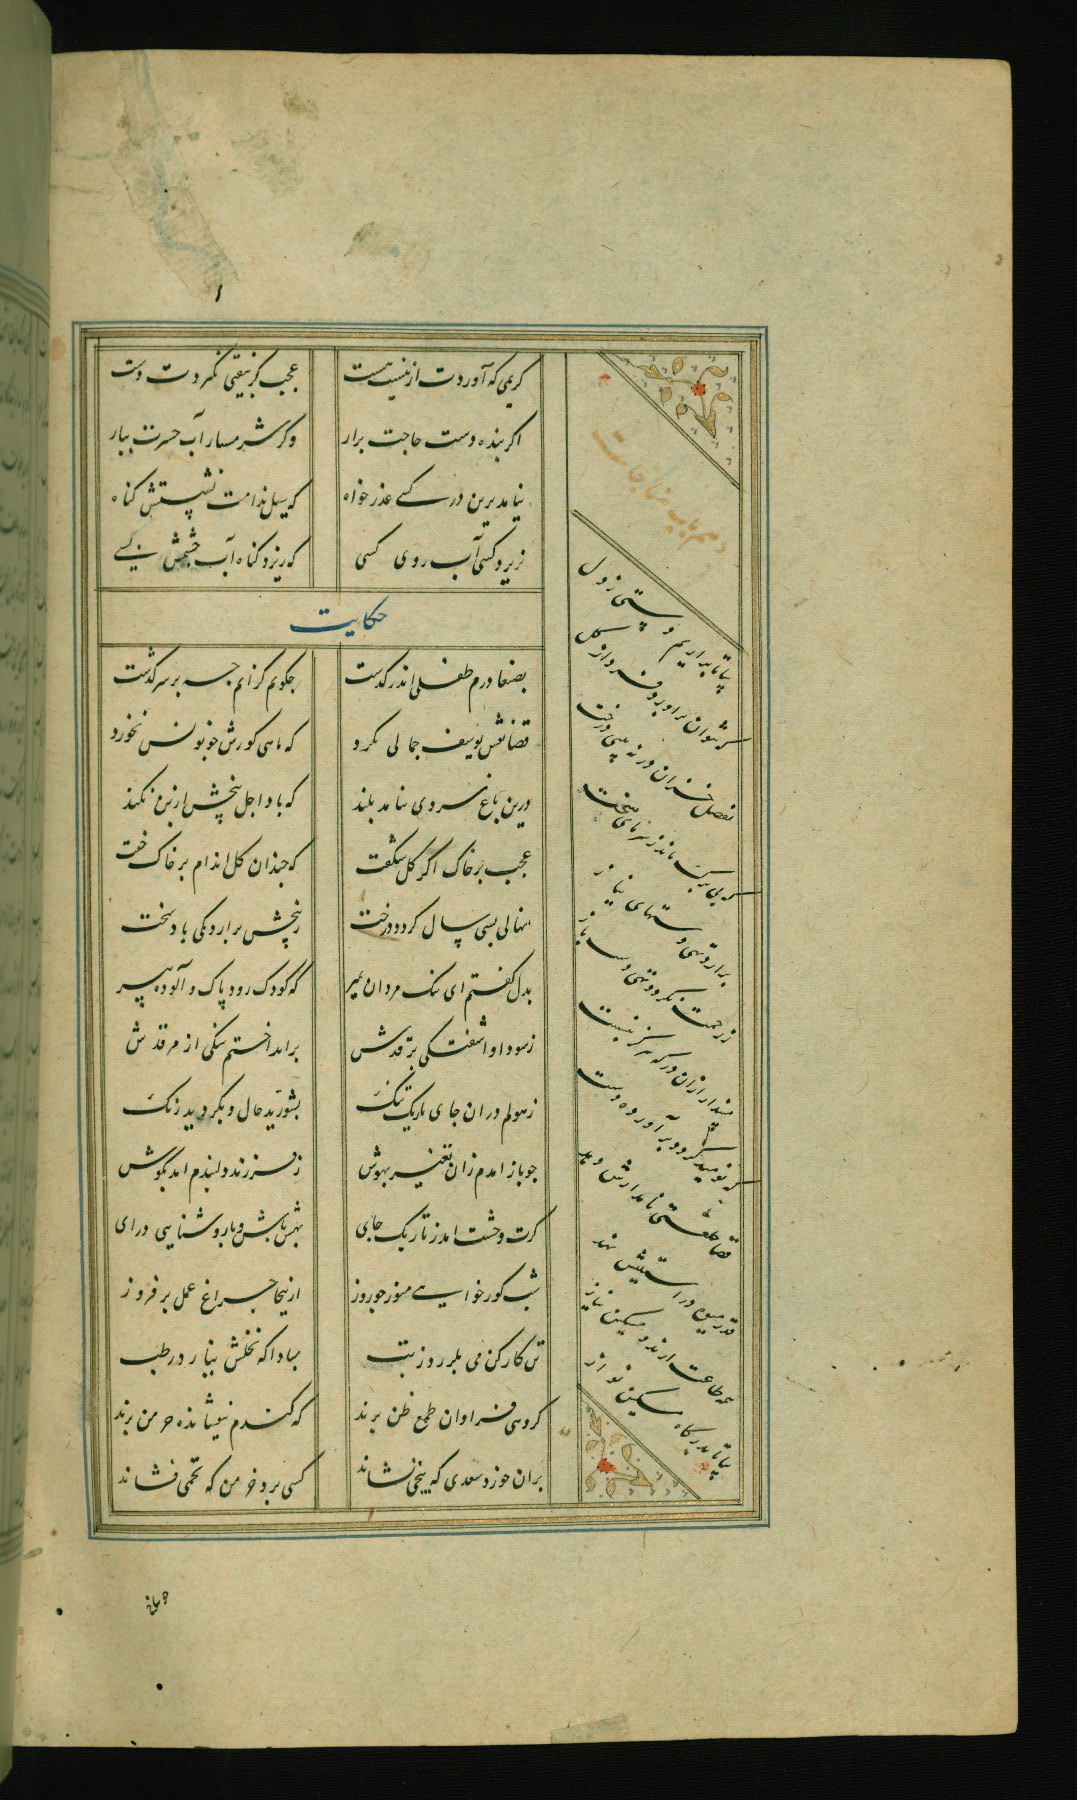 کریمی که آوردت از نیست هست
عجب گر بیفتی نگیردت دست
اگر بنده دست حاجت برار
وگر شرمسار آب حسرت ببار
نیامد برین در کسی عذر خواه
که سیل ندامت نشستش گناه
نریزد کسی آب روی کسی
که ریزد گناه آب چشمش بسی
حکایت
بصنعا درم طفلی اندر گذشت
چگویم کزانم چه بر سر گذشت
قضا نقش یوسف جمالی نکرد
که ماهی گورش چو یونس نخورد
درین باغ سروی نیامد بلند
که باد اجل بیخش از بن نکند
عجب بر خاک اگر گل شگفت
که چندان گل اندام بر خاک خفت
نهالی بسی سال گردد درخت
ز بیخش برآرد یکی باد سخت
بدل گفتم ای ننگ مردان بمیر
که کودک رود پاک و آلوده پیر
ز سودا و آشفتگی بر قدش
برانداختم سنگی از مرقدش
ز هولم دران جای تاریک تنگ
بشورید حال و بگردید رنگ
چو باز آمدم زان تغیر بهوش
ز فرزند دلبندم آمد بگوش
گرت وحشت آمد ز تاریک جای
بهش باش و با روشنایی درای
شب گور خواهی منور چو روز
ازینجا چراغ عمل بر فروز
تن کارکن می بلرزد ز تب
مبادا که نخلش نیارد رطب
گروهی فراوان طمع ظن برند
که گندم نیفشانده خرمن برند
بران خورد سعدی که بیخی نشاند
کسی برد خرمن که تخمی فشاند
دهم باب مناجات
بیا تا براریم دستی ز دل
که نتوان براورد فردا ز گل
بفصل خزان در نه بینی درخت
که بی برگ ماند ز سرمای سخت
برارد تهی دستهای نیاز
ز رحمت نگردد تهی دست باز
مپندار ازان در که هرگز نبست
که نومید گردد برآورده دست
قضا خلعتی نامدارش دهد
قدر میوه در آستینش نهد
همه طاعت ارند و مسکین نیاز
بیا تا بدرگاه مسکین نواز